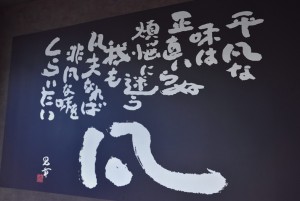 平凡な
味は
正直いう
煩悩に迷う
我も
凡夫なれば
非凡な味を
くらいたい
凡